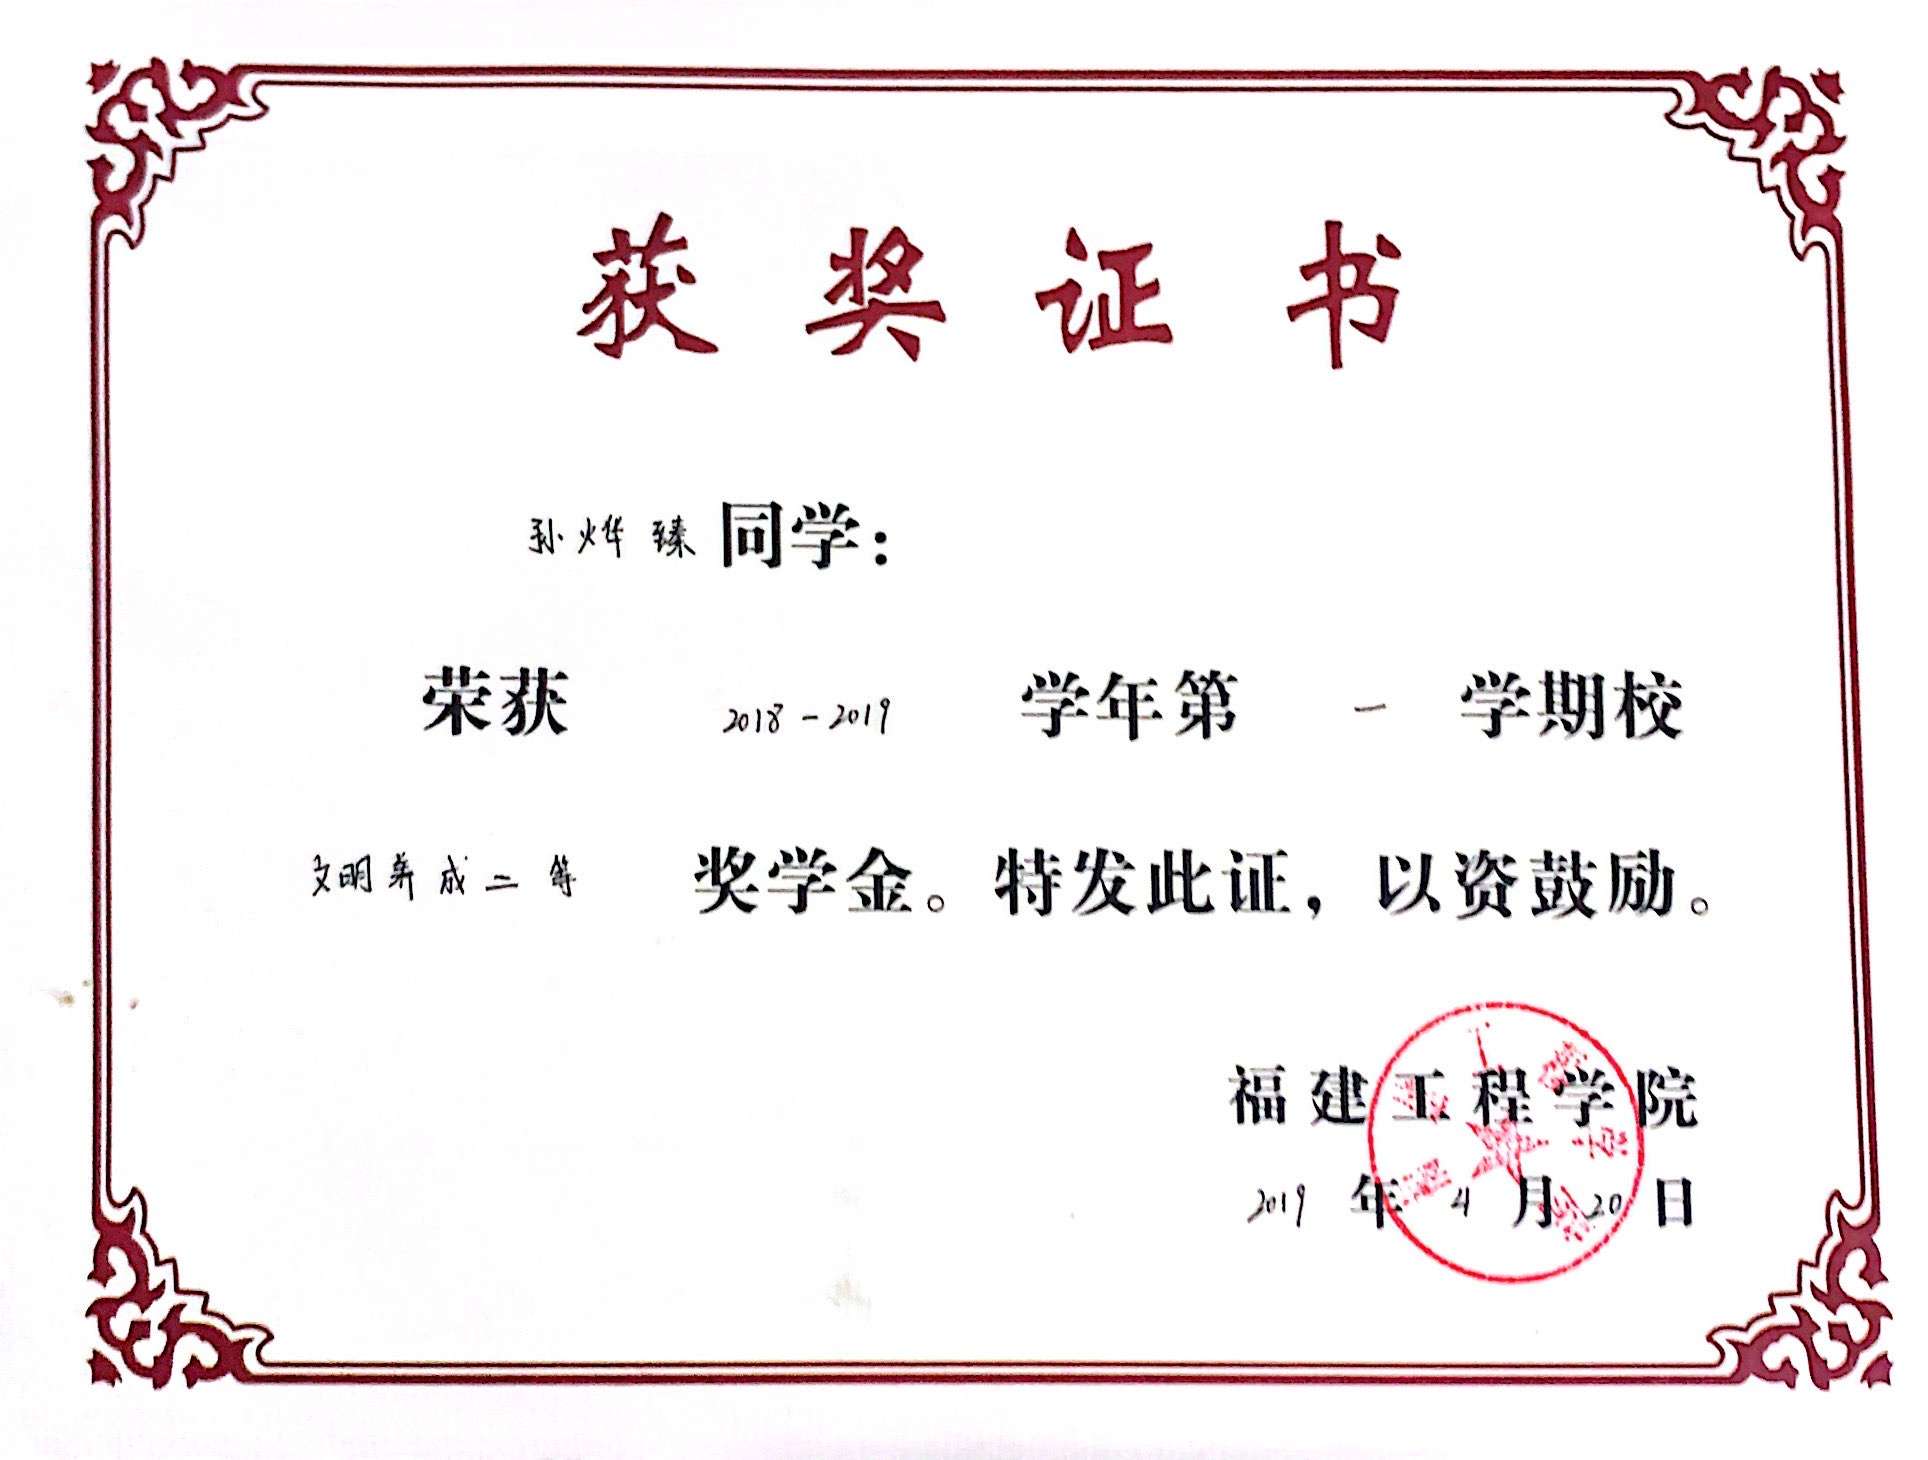 获奖证书
孙烨臻同学：
荣获 2018-2019 学年第 一 学期校
文明养成二等 奖学金。特发此证，以资鼓励。
福建工程学院
2019 年 4 月 20 日